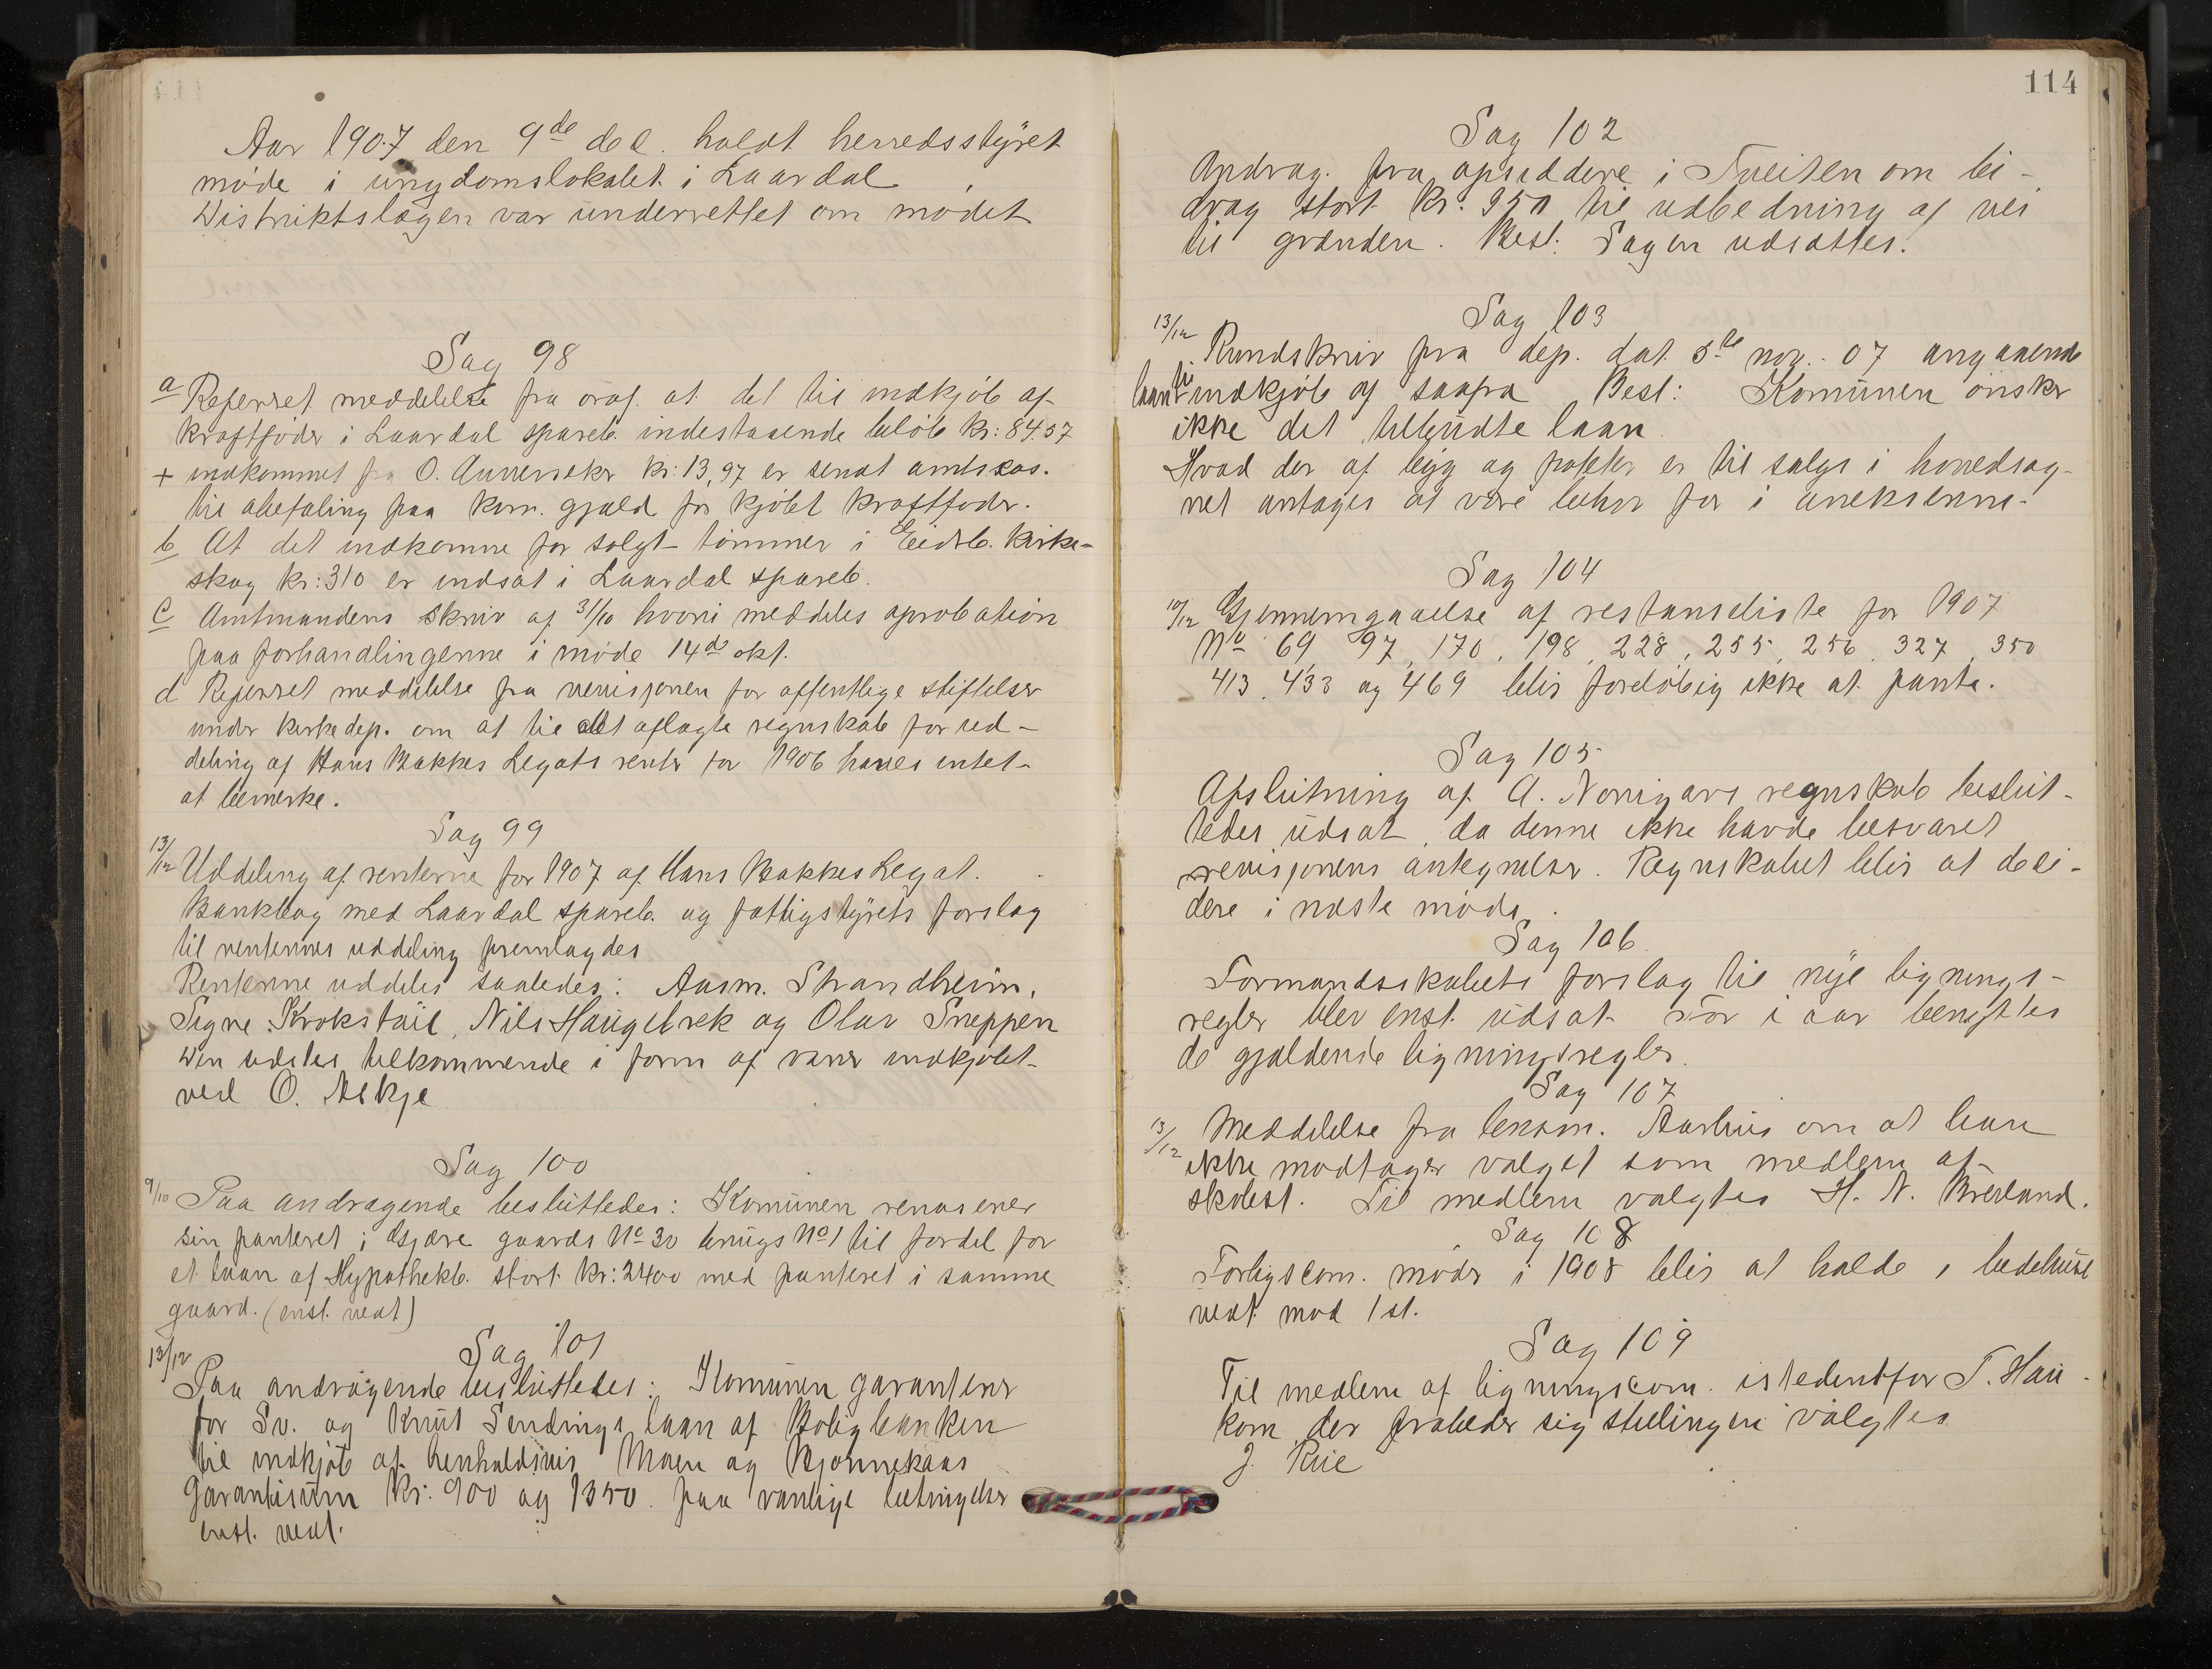 Aar 1907 den 9de des. holdt herredsstyret
møde i ungdomslokalet i Laardal
Distriktslægen var underrettet om mødet
Sag 98
a Referert meddelelse fra ordf. at det til indkjøb af
kraftfoder i Laardal spareb. indestaaende beløb kr: 84.57
+ indkommet fra O. kr: 13,97 er sendt amtskas.
til abetaling paa kom. gjæld for kjøbt kraftfoder.
b At det indkomne for solgt tømmer i Eidsb. kirke-
skog kr: 310 er indsat i Laardal spareb.
c Amtmandens skriv af 31/10 hvori meddeles aprobation
paa forhandlingerne i møde 14de okt.
d Referert meddelelse fra revisjonen for offentlige stiftelser
under kirkedep. om at til det aflagte regnskab for ud-
deling af Hans Bakkes Legats renter for 1906 haves intet
at bemerke.
Sag 99
13/12 Uddeling af renterne for 1907 af Hans Bakkes Legat.
Bankbog med Laardal spareb. og fattigstyrets forslag
til renternes uddeling fremlagdes
Renterne uddeles saaledes: Aasm. Strandheim,
Signe Krokstail, Nils Haugebrek og Olav Sneppen
Den udeles vedkommende i form af varer indkjøbt
ved O. Askje
Sag 100
9/10 Paa andragende besluttedes: Komunen
sin panteret i Gjære gaards No 30 brugs No 1 til fordel for
et laan af Hypothekb. stort kr: 2400 med panteret i samme
gaard. (enst. vedt)
Sag 101
13/12
Paa andragende besluttedes: Komunen garanterer
for Sv. og Knut Sendings laan af Boligbanken
til indkjøb af henholdsvis Moen og Bjønnekaas
Garantisum kr: 900 og 1350. paa vanlige betingelser
enst. vedt.
114
Sag 102
Andrag. fra opsiddere i Tveiten om bi-
drag stort kr: 350 til udbedring af vei
til grænden. Besl: Sagen udsættes.
Sag 103
13/12 Rundskriv fra dep. dat. 5te nov. 07 angaaende
laan til indkjøb af saafrø Besl: Komunen ønsker
ikke det tilbudte laan.
Hvad der af bygg og poteter er til salgs i hovedsog-
net antages at være behov for i aneksene.
Sag 104
10/12 Gjennemgaaelse af restanseliste for 1907
No 69, 97, 170, 198, 228, 255, 256, 327, 350
413, 433 og 469 blir foreløbig ikke at pante.
Sag 105
Afslutning af A. Norigars regnskab beslut-
tedes udsat, da denne ikke havde besvaret
revisjonens antegnelser. Regnskabet blir at deci-
dere i næste møde.
Sag 106
Formandsskabets forslag til nye lignings-
regler blev enst. udsat. For i aar benyttes
de gjældende ligningsregler.
Sag 107
13/12 Meddelelse fra lensm. Aarhus om at han
ikke modtager valget som medlem af
skolest. Til medlem valgtes H. N. Breland.
Sag 108
Forligscom. møder i 1908 blir at holde i bedehuset
vedt. mod 1 st.
Sag 109
Til medlem af ligningscom. istedentfor T. Hau-
kom der frabeder sig stillingen valgtes
J. Rue